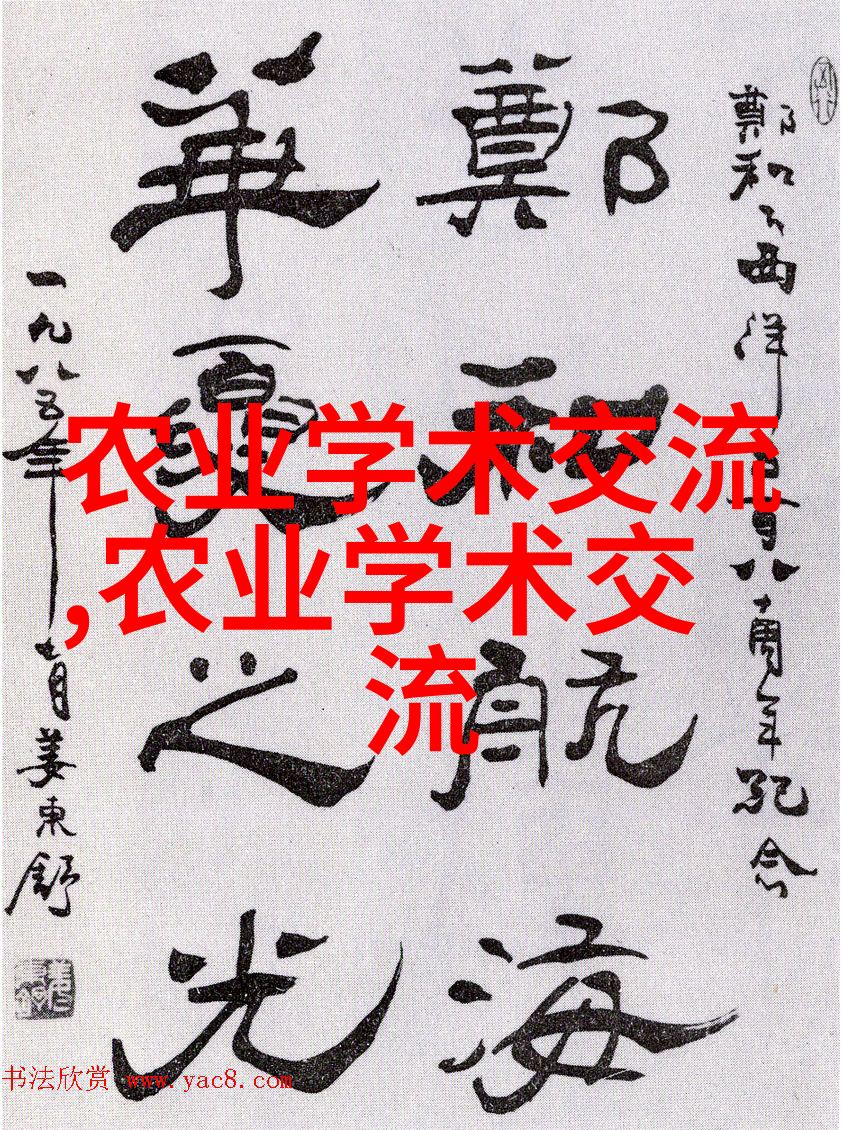 鄭和下西洋五百八十周年紀念
鄭和航海
華夏之光
一九八五年七月姜東舒
农业学术交流
,农业学术交
流
书法欣赏 www.yac8.com